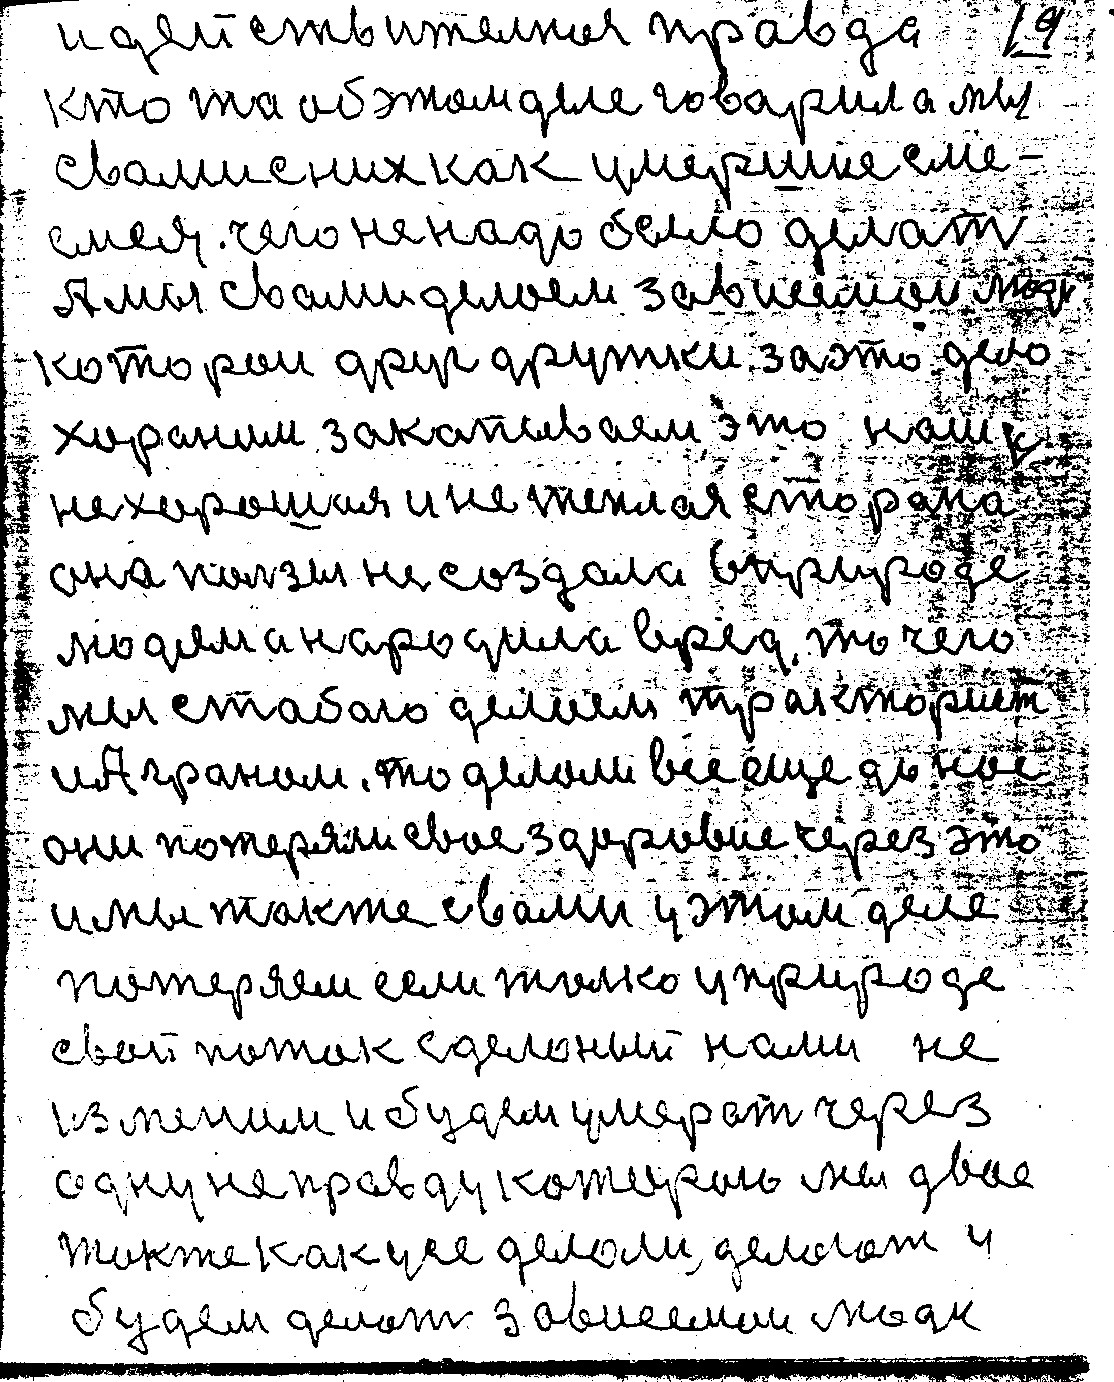 и действителная правда 19
кто та об этом деле говарил а мы
свами сних как умершие сме-
емся. чего не надо было делат
А мы свами делаем зависимаи люди
котораи друг дружки за это дело
хораним закапываем это наша
нехорошая и не теплая сторана
она ползы не создала вприроде
людям а народила вред. то чего
мы стабою делаем тракторист
и Аграном. то делали все еще до нас
они потеряли свое здоровие через это
и мы также свами у этом деле
потеряем если толко у природе
свой поток сделаный нами не
изменим и будем умерат через
одну неправду которою мы двое
также как усе делали, делают и
будем делат зависимаи люди